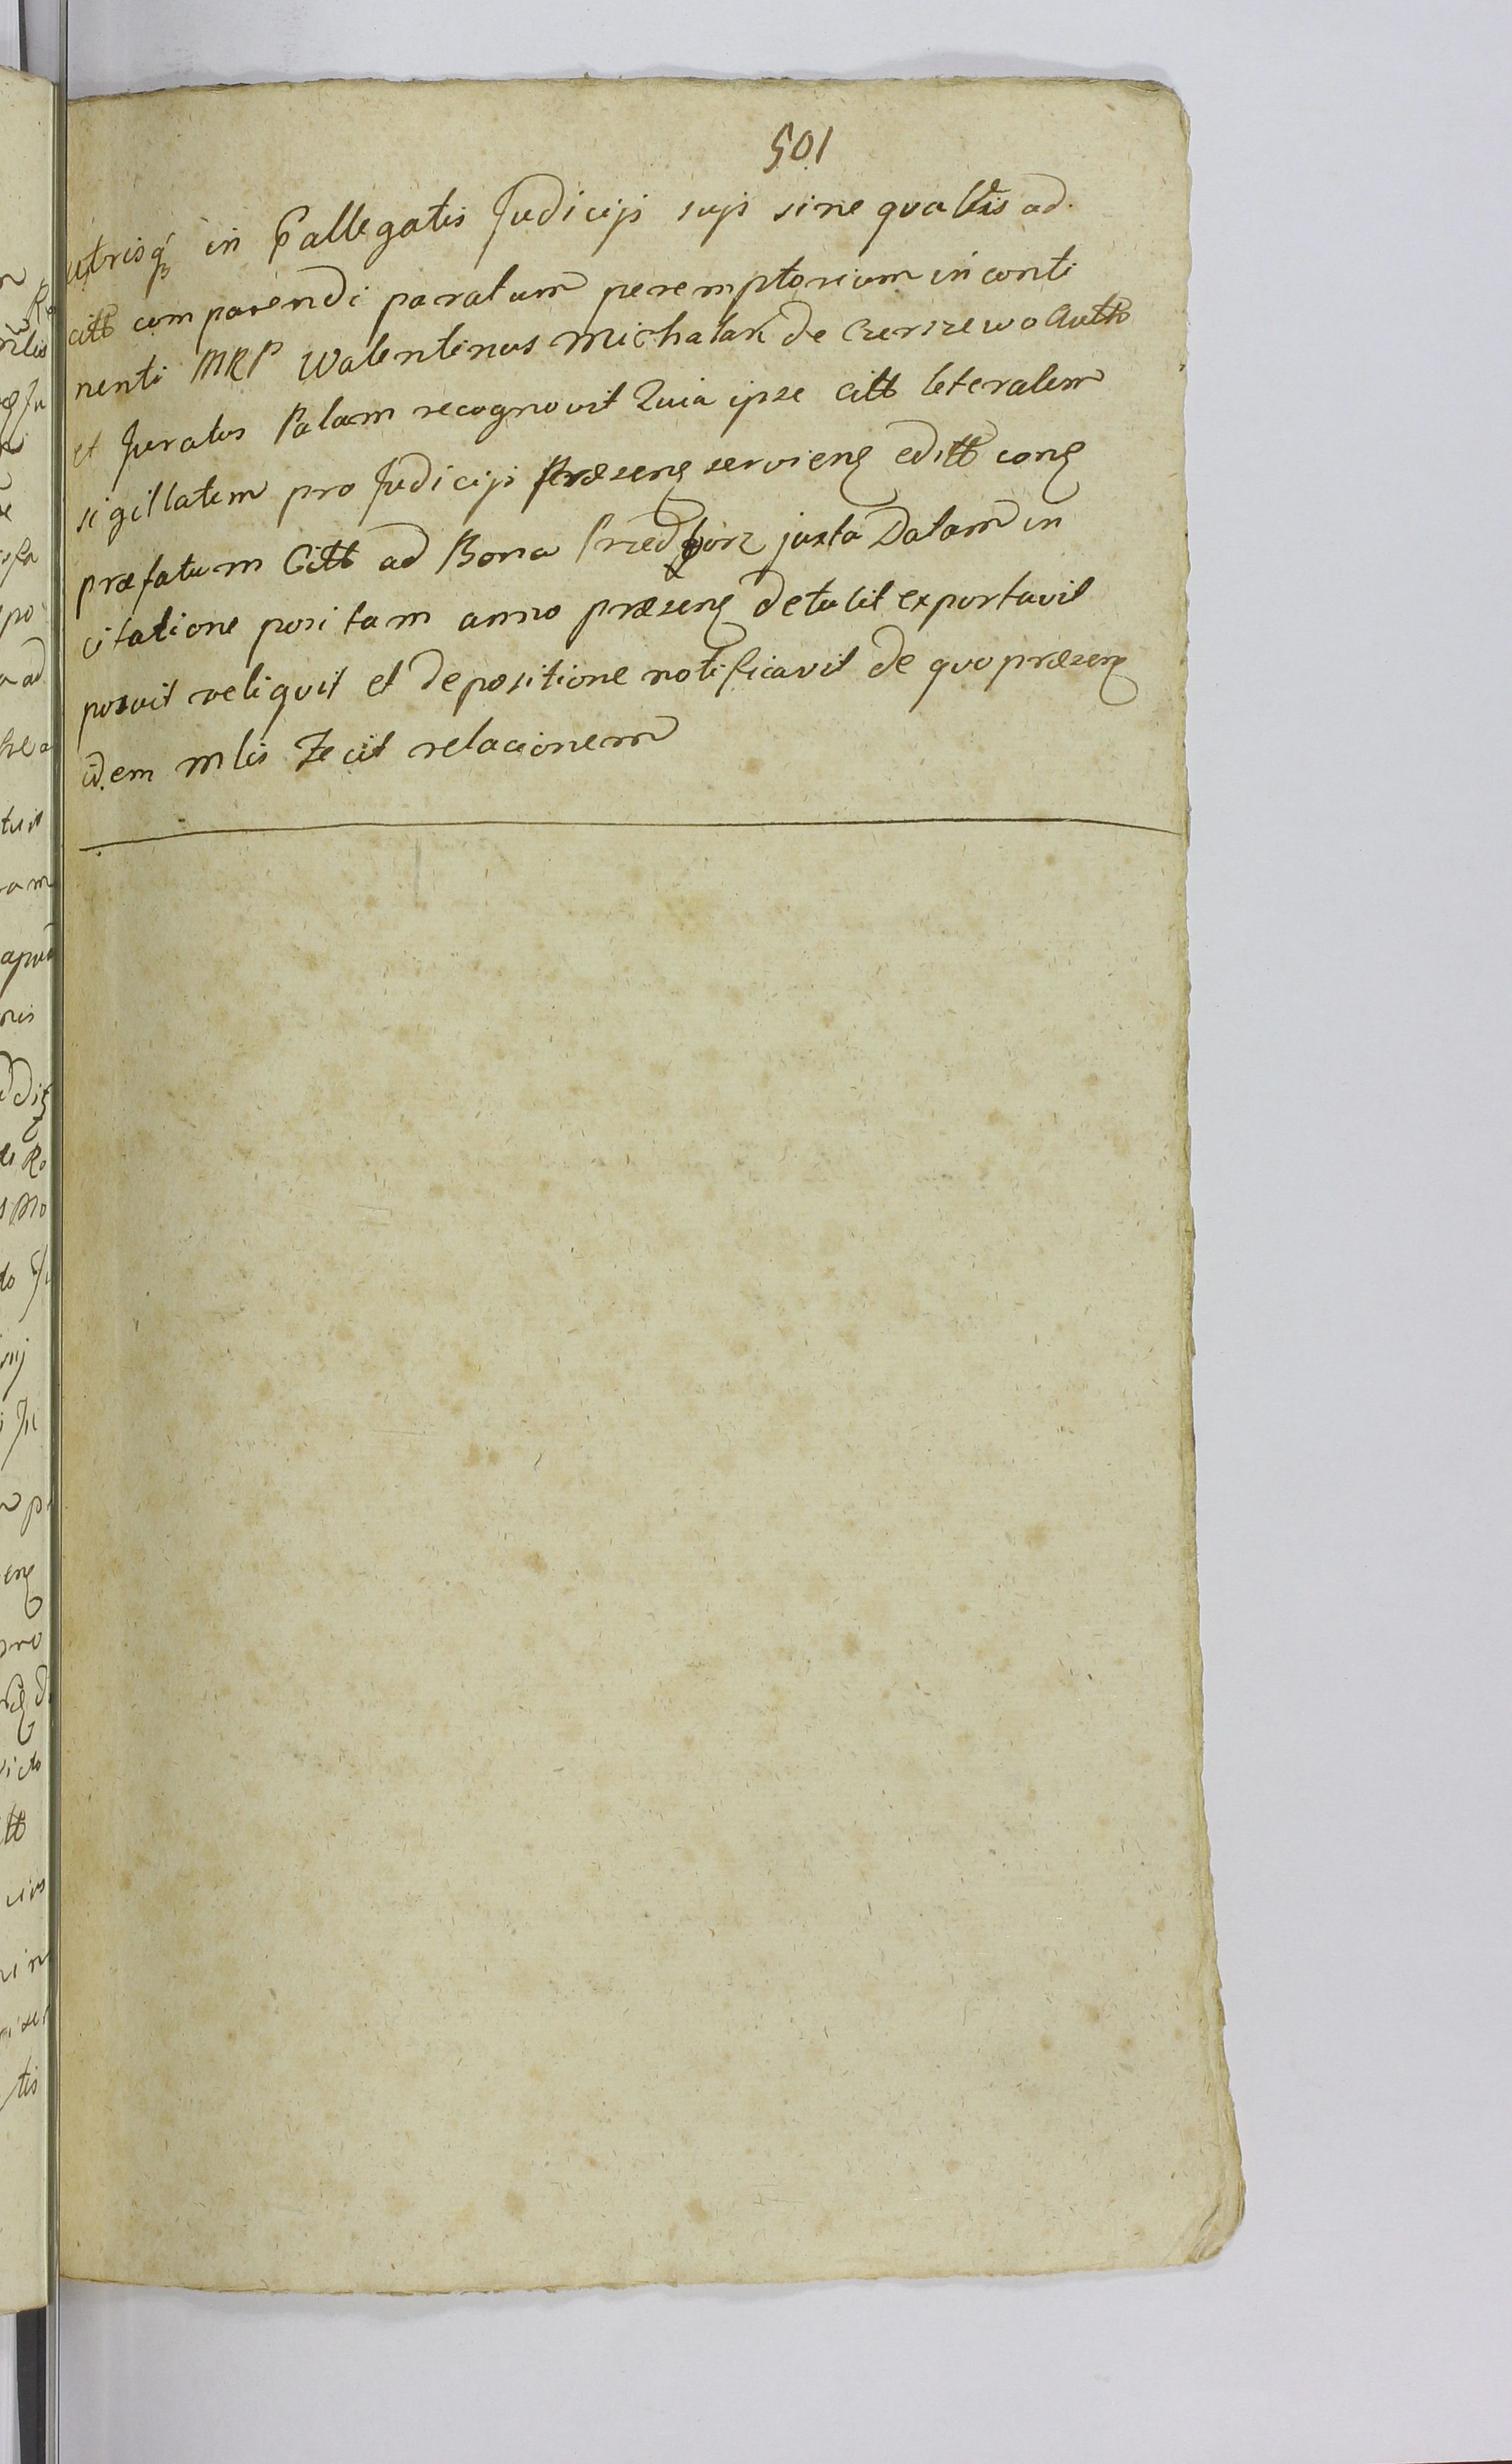 501
utrisq in Pallegatis Judicijs suis sine ad
citt comparendi paratum peremptorium in conti
nenti MRP Walentinus Michalak de Autt
et Juratus Palam recognovit Quia ipse citt leteralem
sigillatim pro Judicijs præsens serviens editt cons
præfatum Citt ad Bona Przedborz juxta Datam in
citatione positam anno præsens detulit exportavit
posuit reliquit et depositione notificavit de quo præsens
idem mlis Fecit relacionem